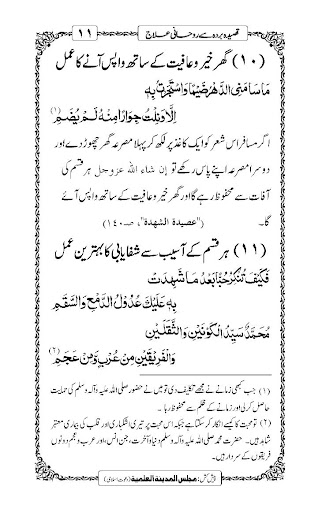 قصیدہ بردہ سے روحانی علاج ۱۱
(۱۰) گھر خیر و عافیت کے ساتھ واپس آنے کا عمل
مَا سَامَنِی الدَّهْرُ ضَیْمًا وَّاسْتَجَرْتُ بِهٖ
اِلَّا وَنِلْتُ جِوَارًا مِّنْهُ لَمْ یُضَمٖ (۱)
اگر مسافر اس شعر کو ایک کاغذ پر لکھ کر پہلا مصرعہ گھر چھوڑ دے اور
دوسرا مصرعہ اپنے پاس رکھے تو إن شاء الله عزوجل ہر قسم کی
آفات سے محفوظ رہے گا اور گھر خیر و عافیت کے ساتھ واپس آئے
گا۔ ("عصیدة الشهدة"، ص۱۴۰)
(۱۱) ہر قسم کے آسیب سے شفایابی کا بہترین عمل
فَكَیْفَ تُنْكِرُ حُبًّا بَعْدَ مَا شَهِدَتْ
بِهٖ عَلَیْكَ عُدُوْلُ الدَّمْعِ وَالسَّقَمٖ
مُحَمَّدٌ سَیِّدُ الْكَوْنَیْنِ وَالثَّقَلَیْنِ
وَالْفَرِیْقَیْنِ مِنْ عُرْبٍ وَّمِنْ عَجَمٖ (۲)
(۱) جب کبھی زمانے نے مجھے تکلیف دی تو میں نے حضور صلی اللہ علیہ وآلہ وسلم کی حمایت
حاصل کر لی اور زمانے کے ظلم سے محفوظ رہا۔
(۲) تو محبت کا کیسے انکار کر سکتا ہے جبکہ اس محبت پر تیری اشکباری اور قلب کی بیماری معتبر
شاہد ہیں۔ حضرت محمد صلی اللہ علیہ وآلہ وسلم دنیا و آخرت، جن و انس، اور عرب و عجم دونوں
فریقوں کے سردار ہیں۔
پیش کش: مجلس المدینة العلمیة (دعوتِ اسلامی)